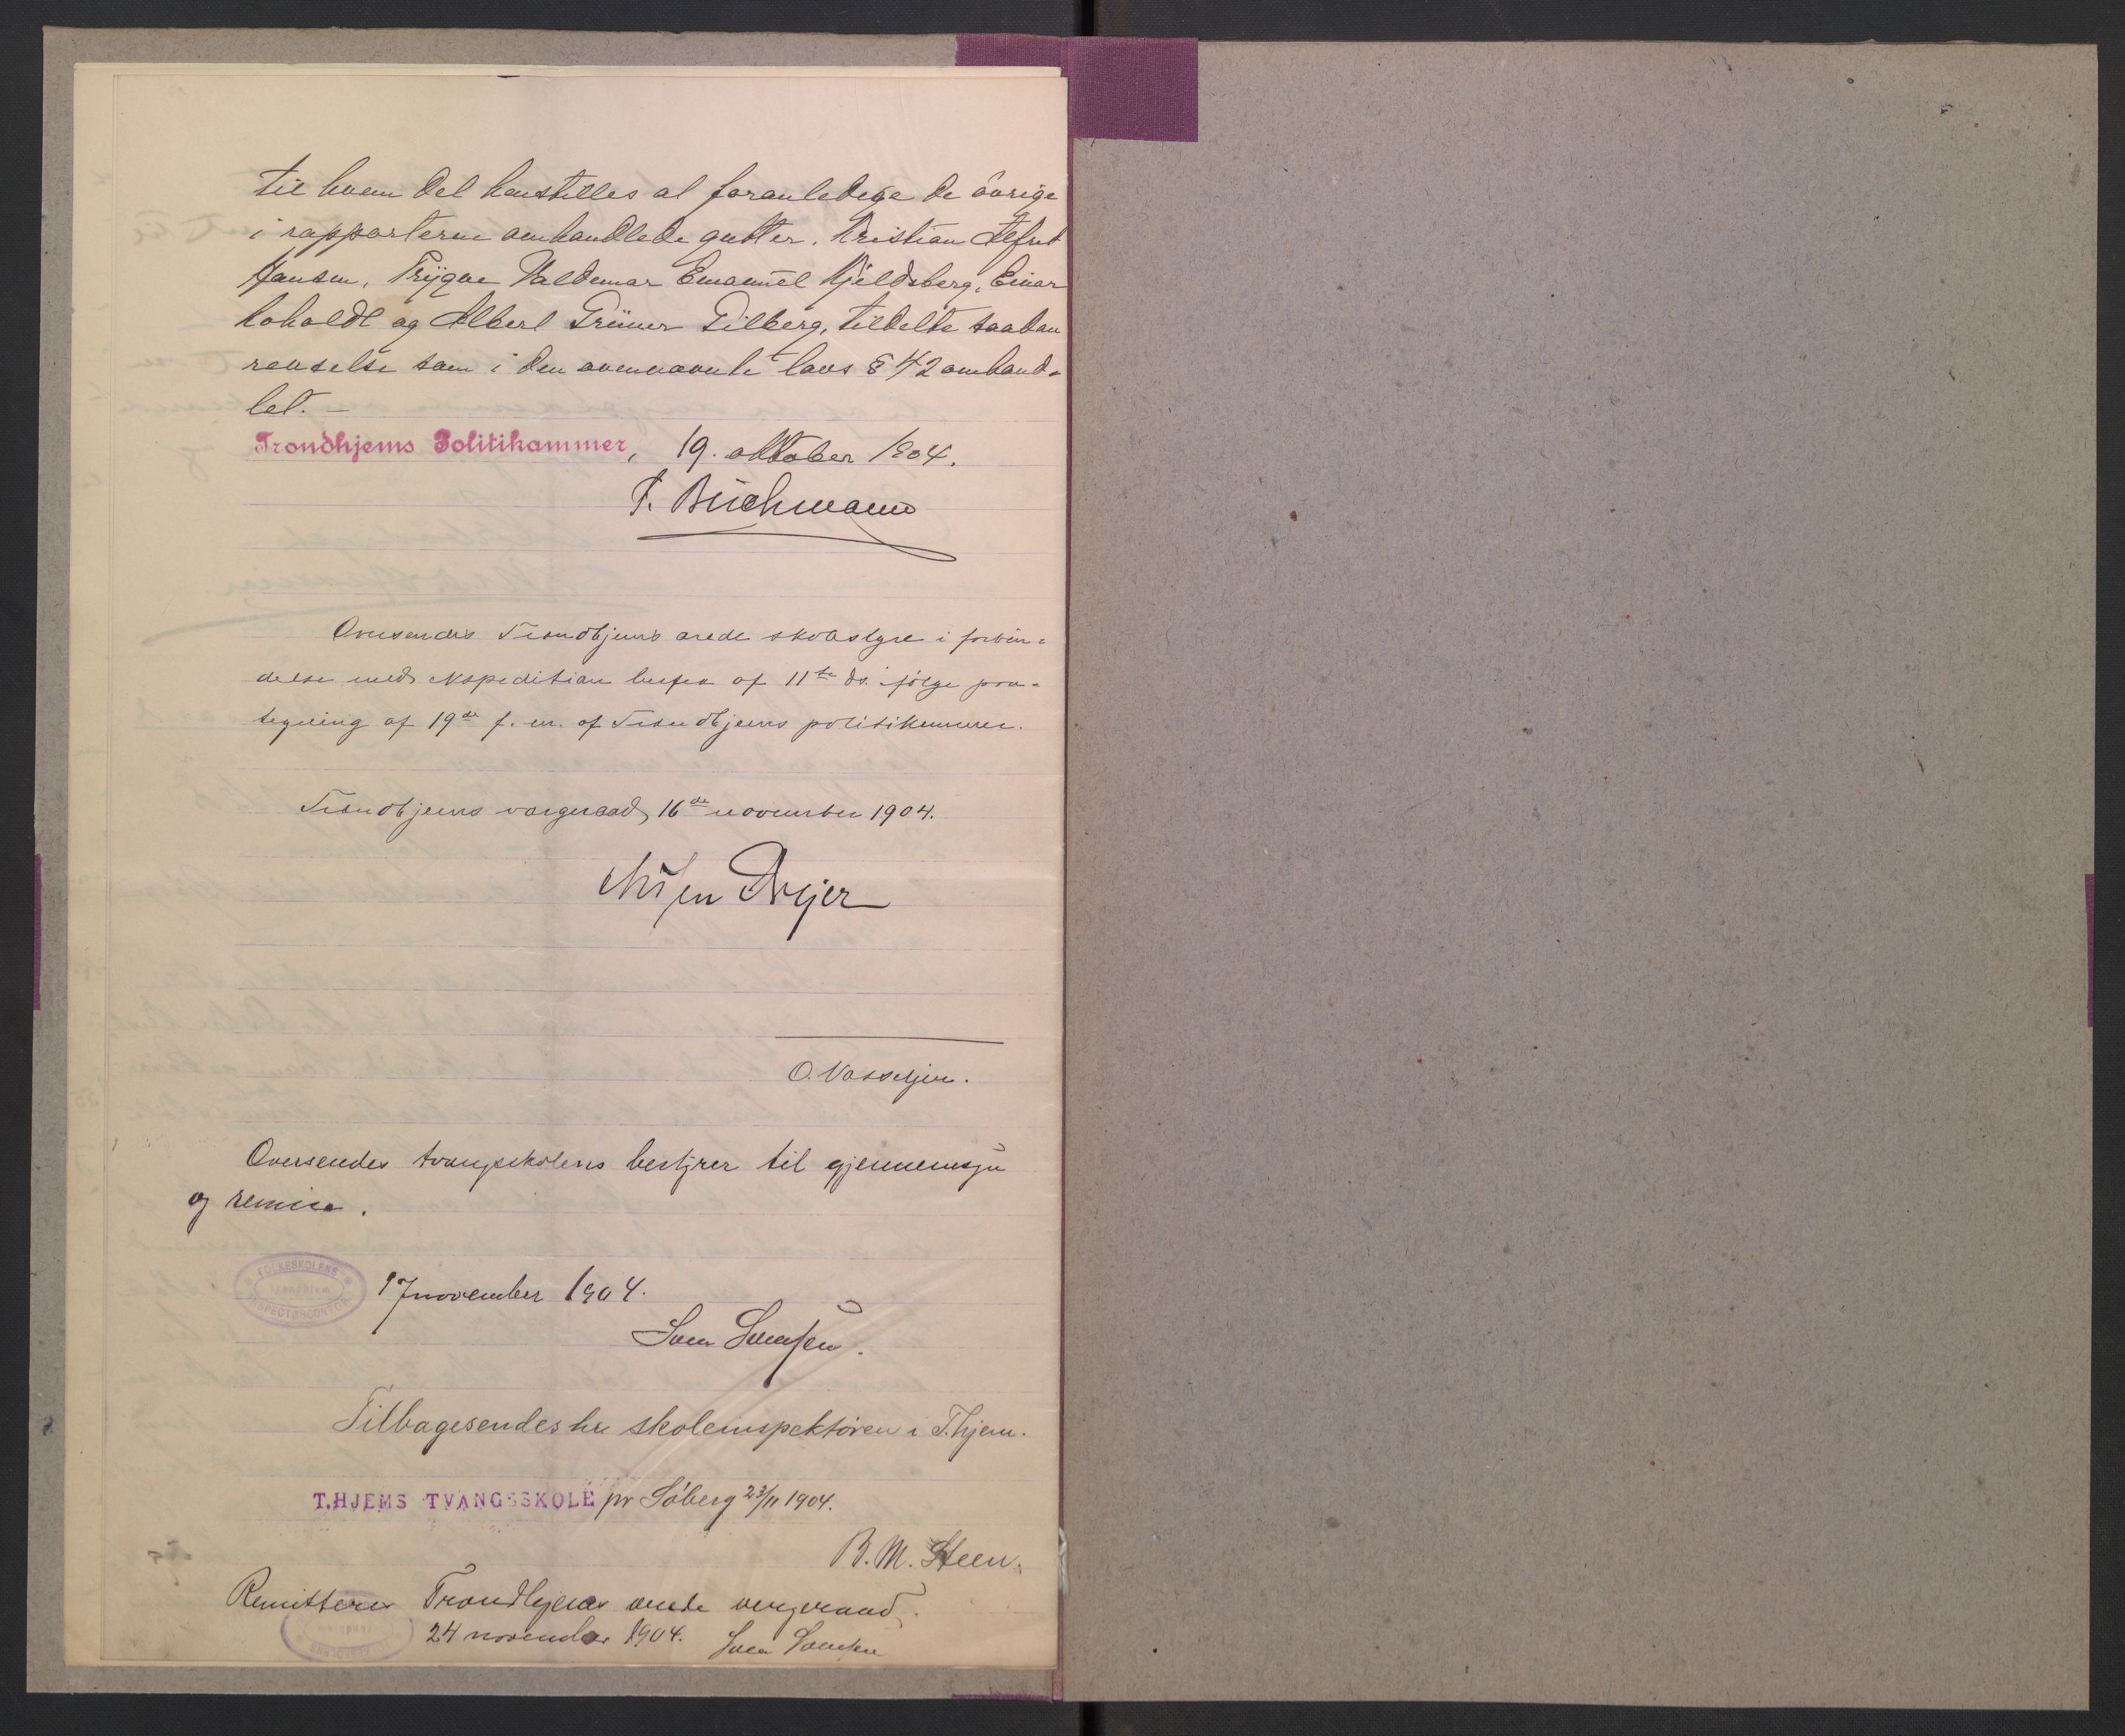 til hvem det henstilles at foranledige de övrige
i rapporterne omhandlede gutter, Kristian Alfred
Jansen, Trygve Valdemar Emanuel Kjeldsberg, Einar
Loholdt og Albert Grüner Gilberg, tildelte saadan
revselse som i den ovennævnte lovs § 42 omhand-
let. –
Trondhjems Politikammer, 19. oktober 1904.
T. Buchmann
Oversendes Trondhjems ærede skolestyre i forbin-
delse med ekspedition herfra af 11te ds. ifølge paa-
tegning af 19de f. m. af Trondhjems politikammer.
Trondhjems vergeraad, 16de november 1904.
Dreyer
O. Vasseljen.
Oversendes tvangsskolens bestyrer til gjennemsyn
og remise.
FOLKESKOLENS
INSPECTØRCONTOR
17 november 1904.
Sven Svensen.
Tilbagesendes hr skoleinspektören i T.hjem.
T.HJEMS TVANGSSKOLE pr Söberg 23/11 1904.
B. M. Steen.
Remitteres Trondhjems ærede vergeraad.
24 november 1904. Sven Svensen